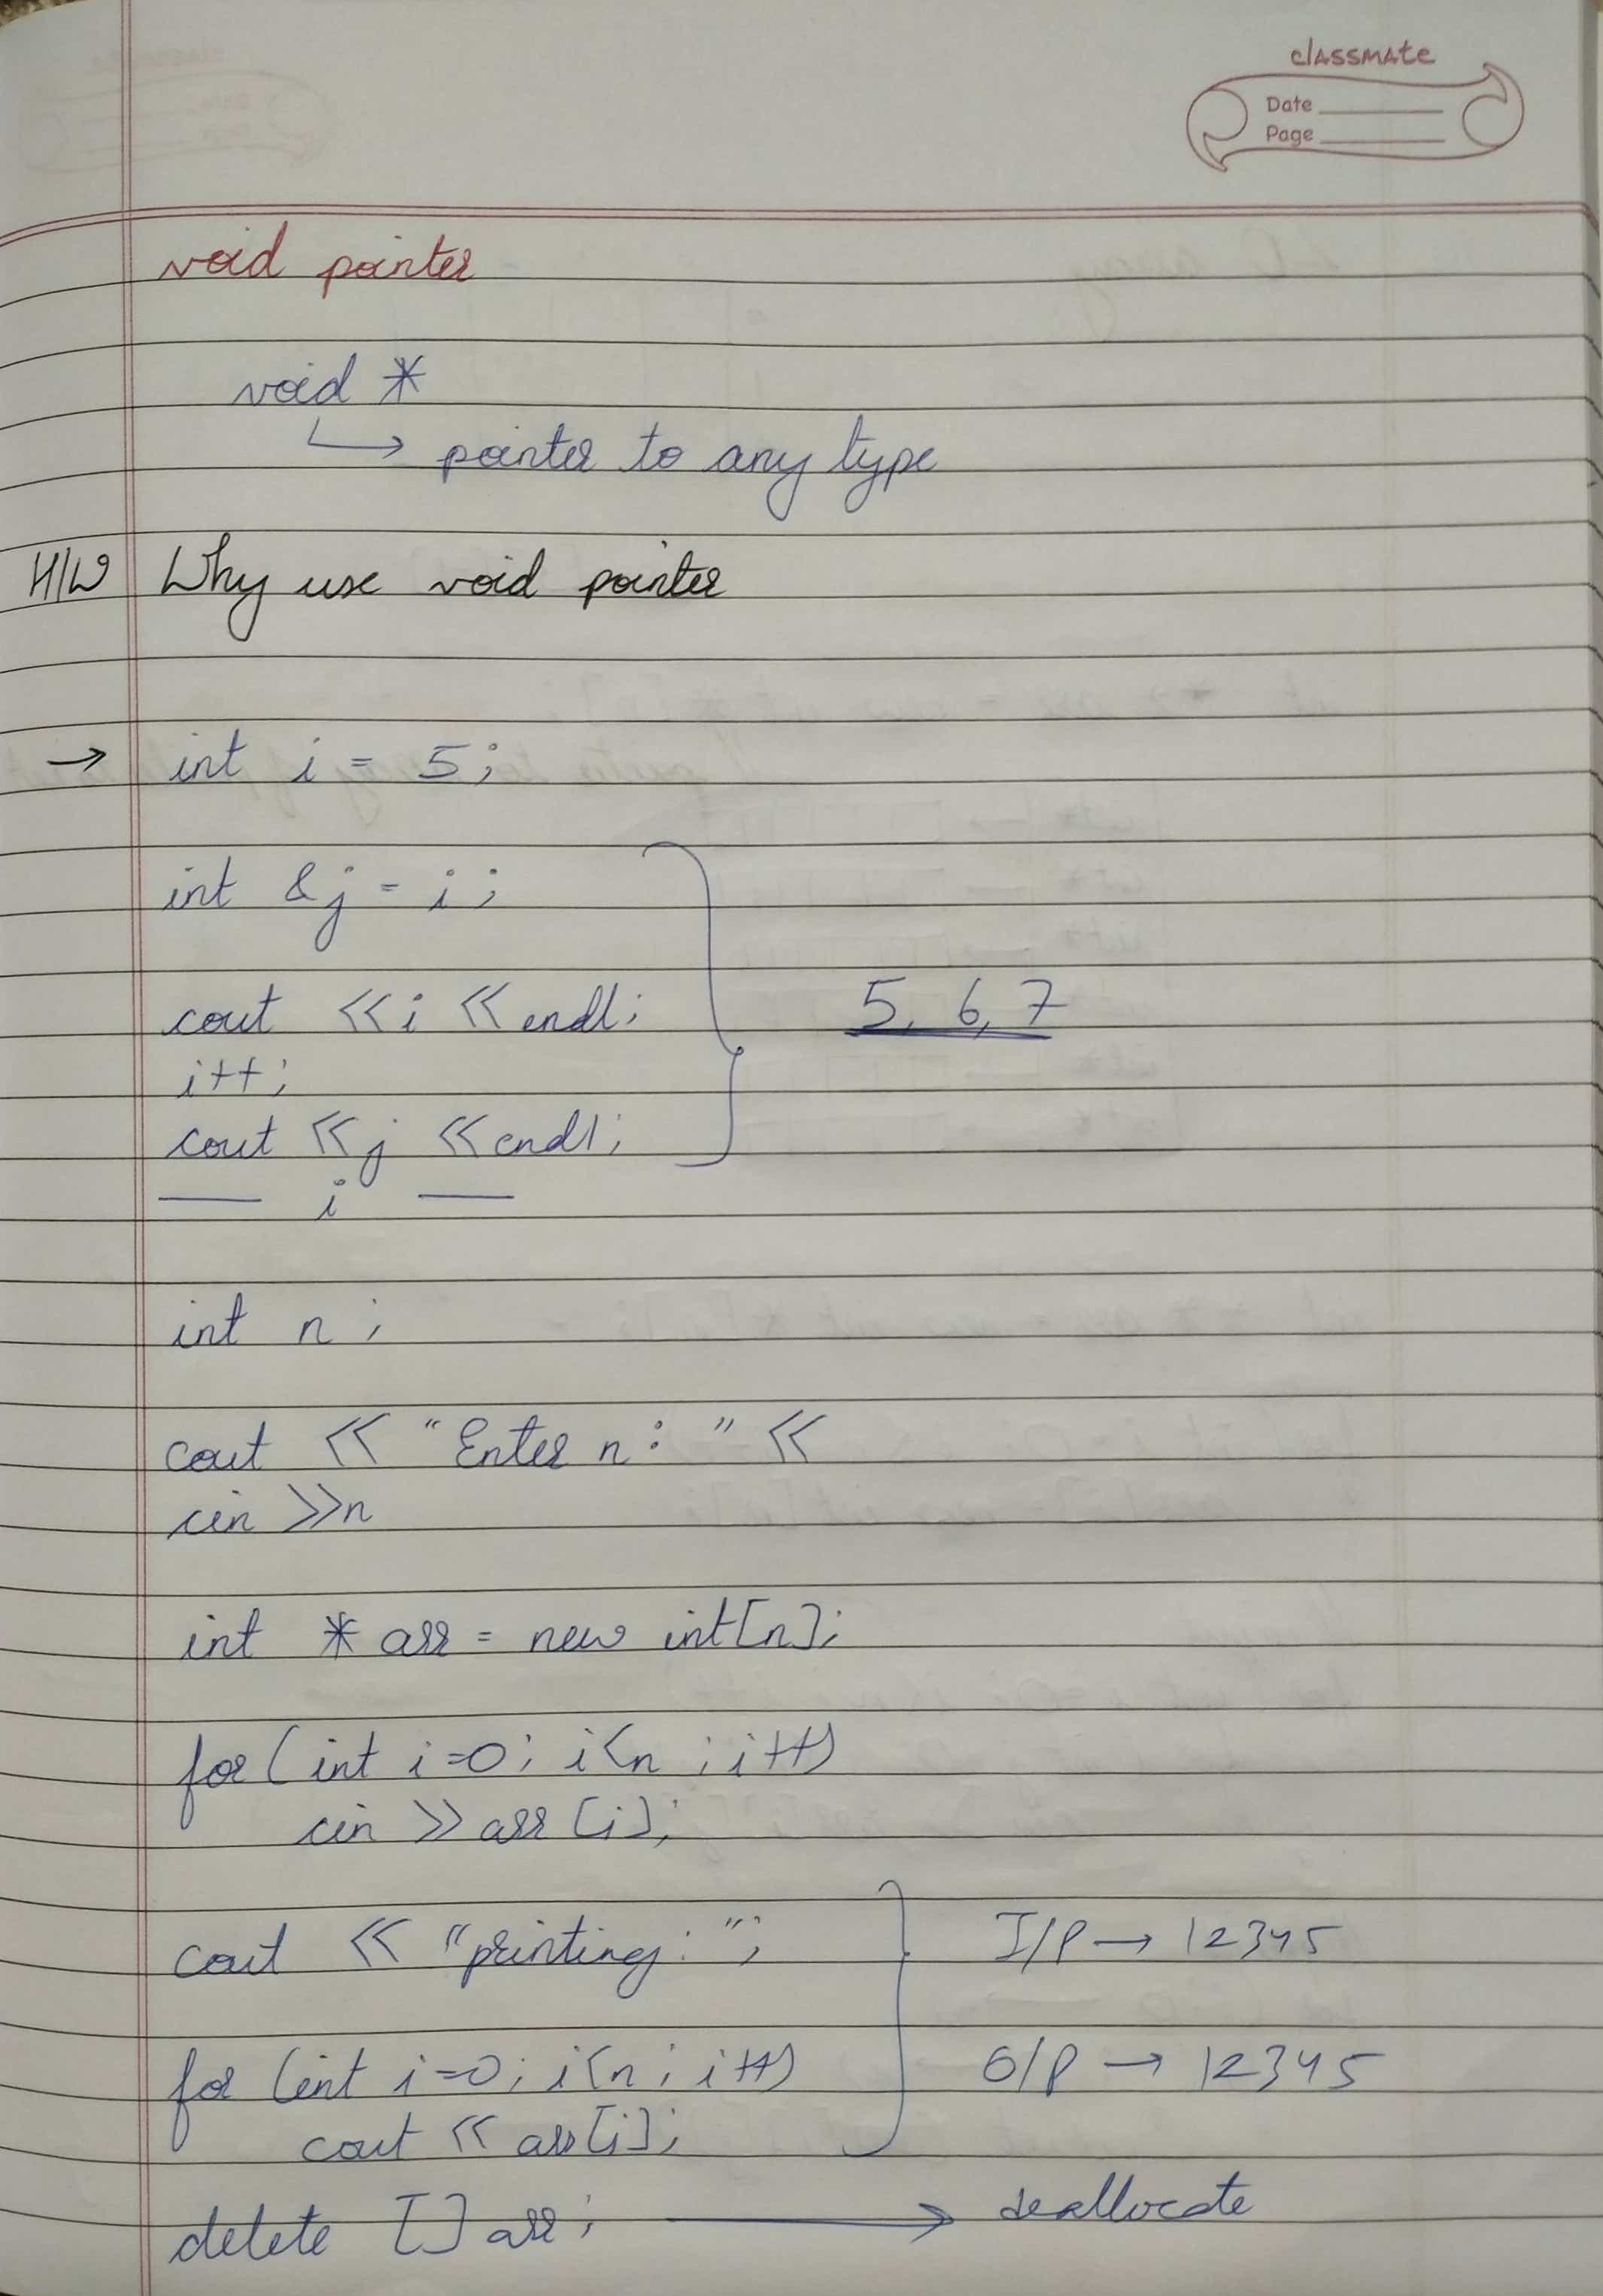 classmate
Date
Page
void pointer
void *
↳ pointer to any type
H/W Why use void pointer
→ int i = 5;
int &j = i;
cout << i << endl;
5, 6, 7
i++;
cout << j << endl;
— i —
int n;
cout << "Enter n: " <<
cin >> n
int * arr = new int[n];
for (int i=0; i<n; i++)
cin >> arr[i];
cout << "printing: ";
I/P → 12345
for (int i=0; i<n; i++)
O/P → 12345
cout << arr[i];
delete [] arr; → deallocate